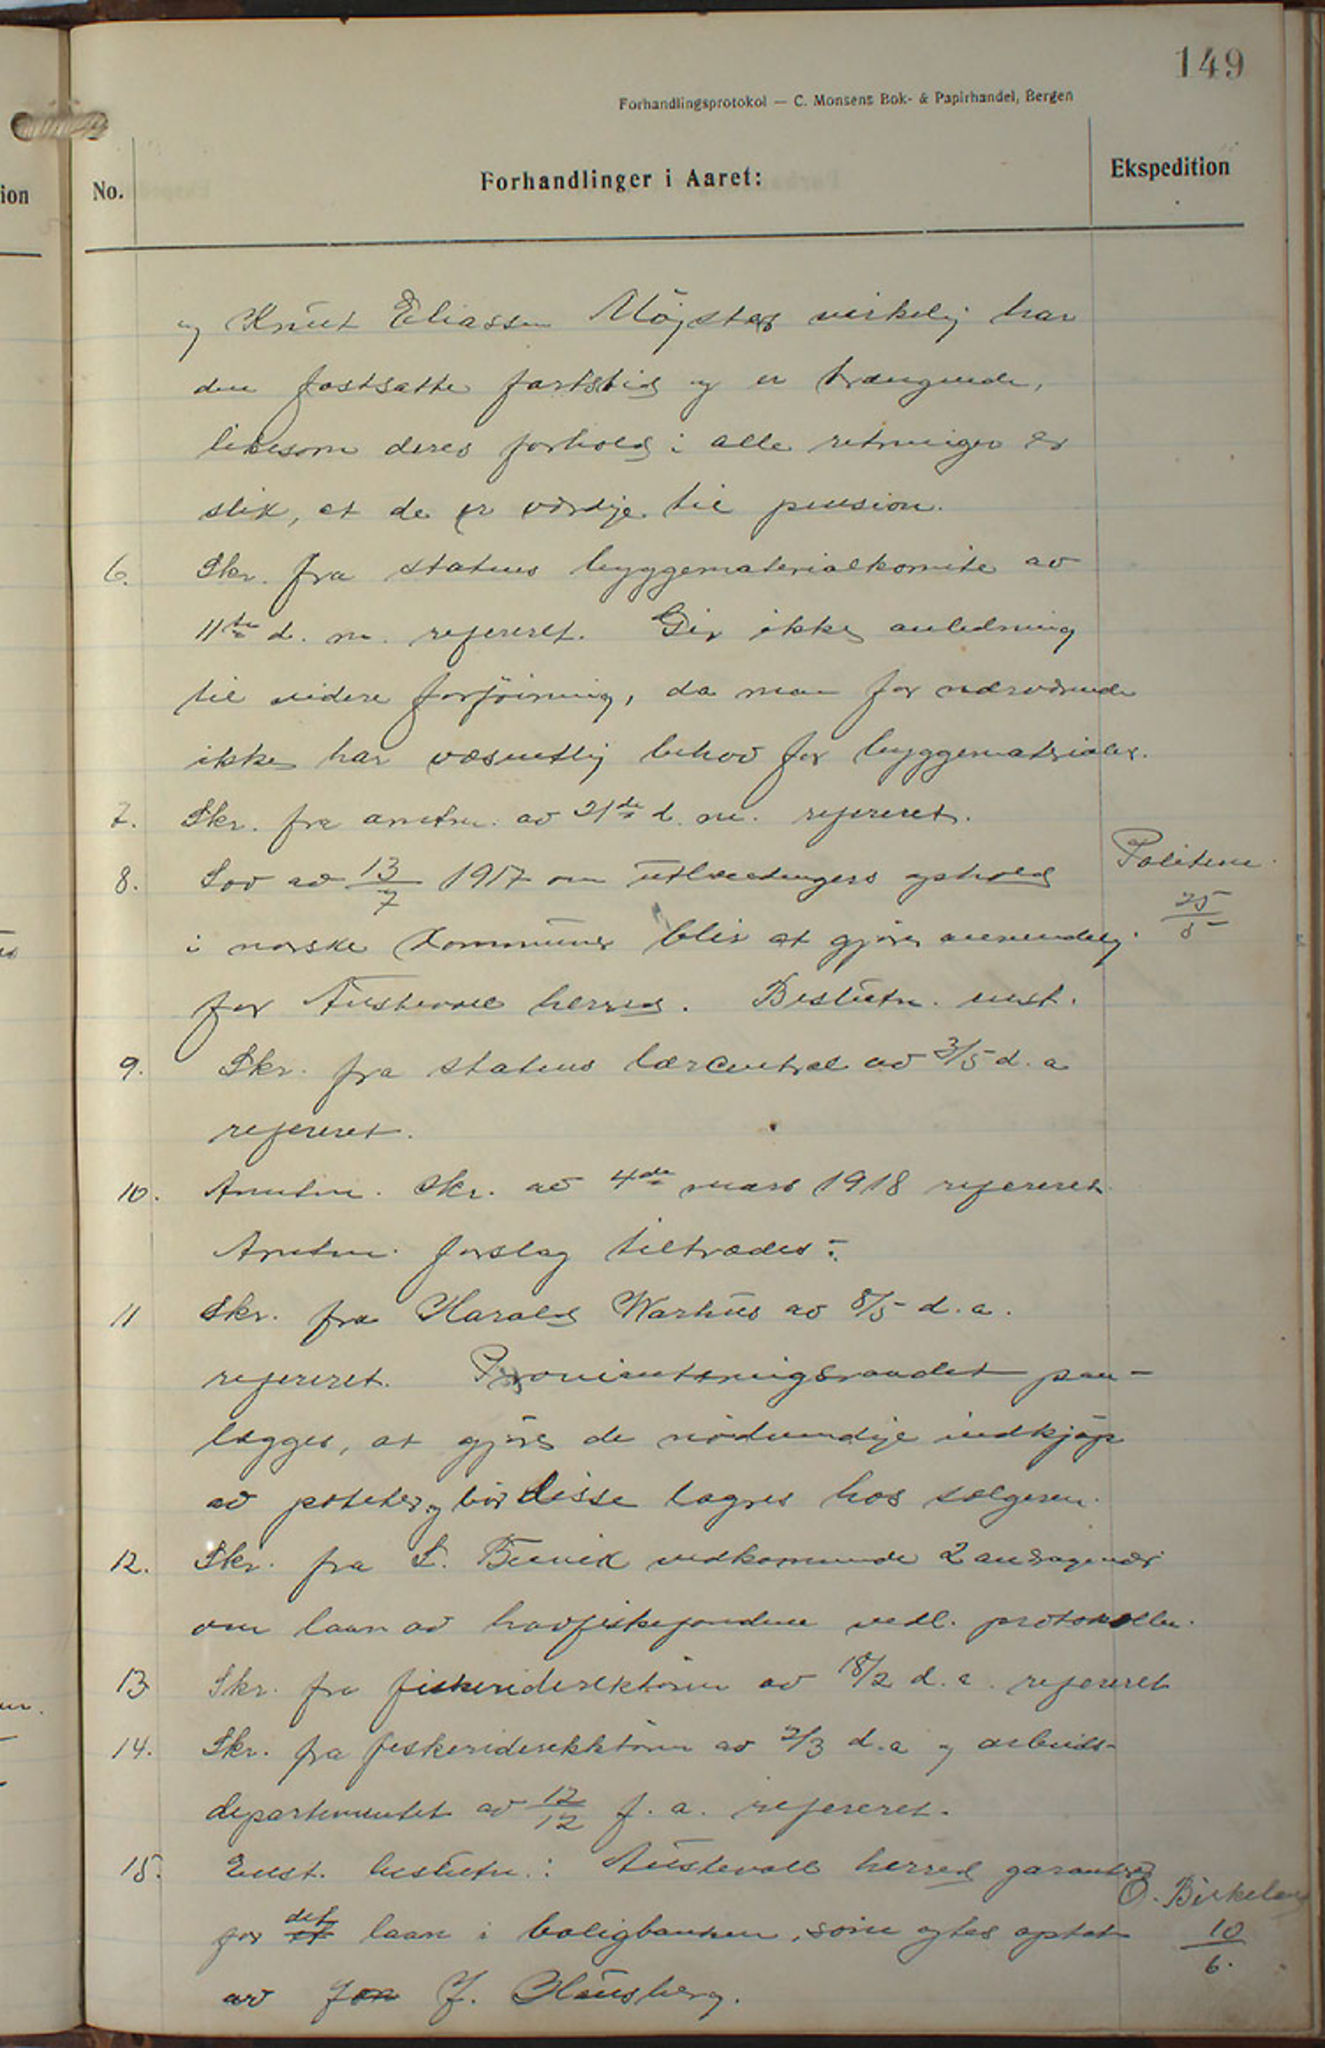 149
Forhandlingsprotokol — C. Monsens Bok- & Papirhandel, Bergen
ion
No.
Forhandlinger i Aaret:
Ekspedition
og Knut Eliassen Møgster virkelig har
den fastsatte fartstid og er trængende,
likesom deres forhold i alle retninger er
slik, at de er værdige til pension.
6. Skr. fra statens byggematerialkomite av
11te d. m. refereret. Gir ikke anledning
til videre forføining, da man for nærværende
ikke har væsentlig behov for byggematerialer.
7. Skr. fra amtm. av 21de d. m. refereret.
8. Lov av 13/7 1917 om utlændingers ophold
Politim.
25/5
i norske kommuner blir at gjøre anvendelig
for Austevoll herred. Beslutn. enst.
9. Skr. fra statens lærcentral av 3/5 d. a
refereret.
10. Amtm. skr. av 4de mars 1918 refereret
Amtm. forslag tiltrædes.
11 Skr. fra Harald Warhus av 8/5 d. a.
refereret. Provianteringsraadet paa-
lægges, at gjøre de nødvendige indkjøp
av poteter og bør disse lagres hos sælgeren.
12. Skr. fra vedkommende 2 andragender
om laan av havfiskefondene vedl. protokollen.
13 Skr. fra fiskeridirektøren av 18/2 d. a. refereret
14. Skr. fra fiskeridirektøren av 2/3 d. a og arbeids-
departementet av 12/12 f. a. refereret.
15. Enst. beslutn.: Austevoll herred garanterer
O. Birkeland
10/6.
for et det laan i boligbanken, som agtes optat
av Jon J. Husberg.